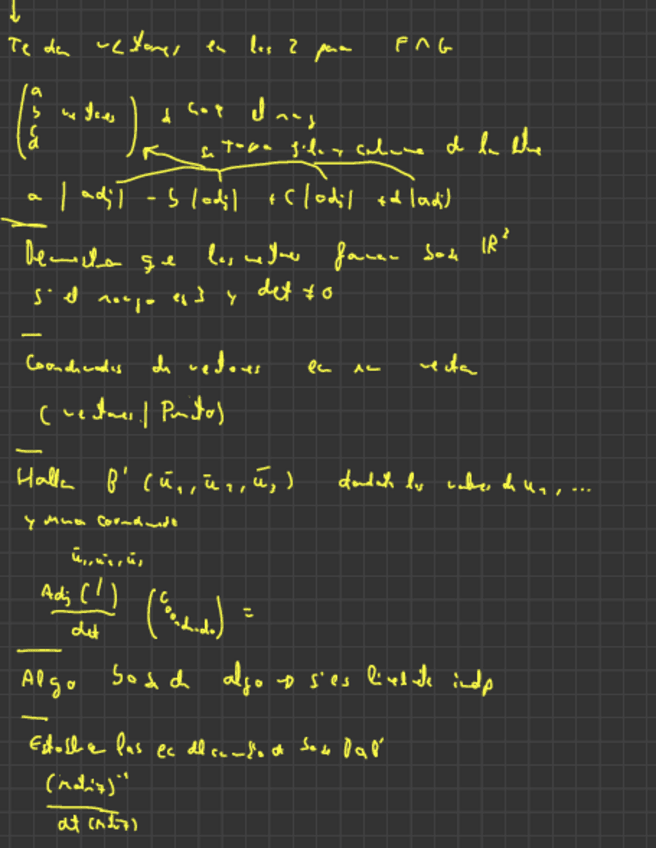 Te dan vectores en los 2 para F∩G
(a b c d vectores)
a |adj| - b |adj| + c |adj| + d |adj|
Demuestra que los vectores forman base ℝ³
si el rango es 3 y det ≠ 0
Coordenadas de vectores en un vector
(vectores | Punto)
Halla B' (ū₁, ū₂, ū₃) dandote los valores de u₁, ...
y una coordenada
ū₁, ū₂, ū₃
Adj ( ) / det (Coordenada) =
Algo base de algo → si es linealmente indp
las ec del cambio de base B a B'
(matriz)⁻¹
det (matriz)